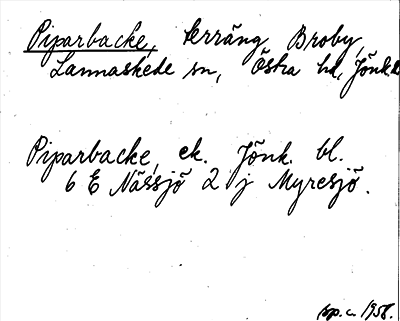 Piparbacke, terräng, Broby,
Lannaskede sn, Östra hd, Jönk. l
Piparbacke, ek. Jönk. bl.
6 E Nässjö 2 j Myresjö.
sp. c. 1958.